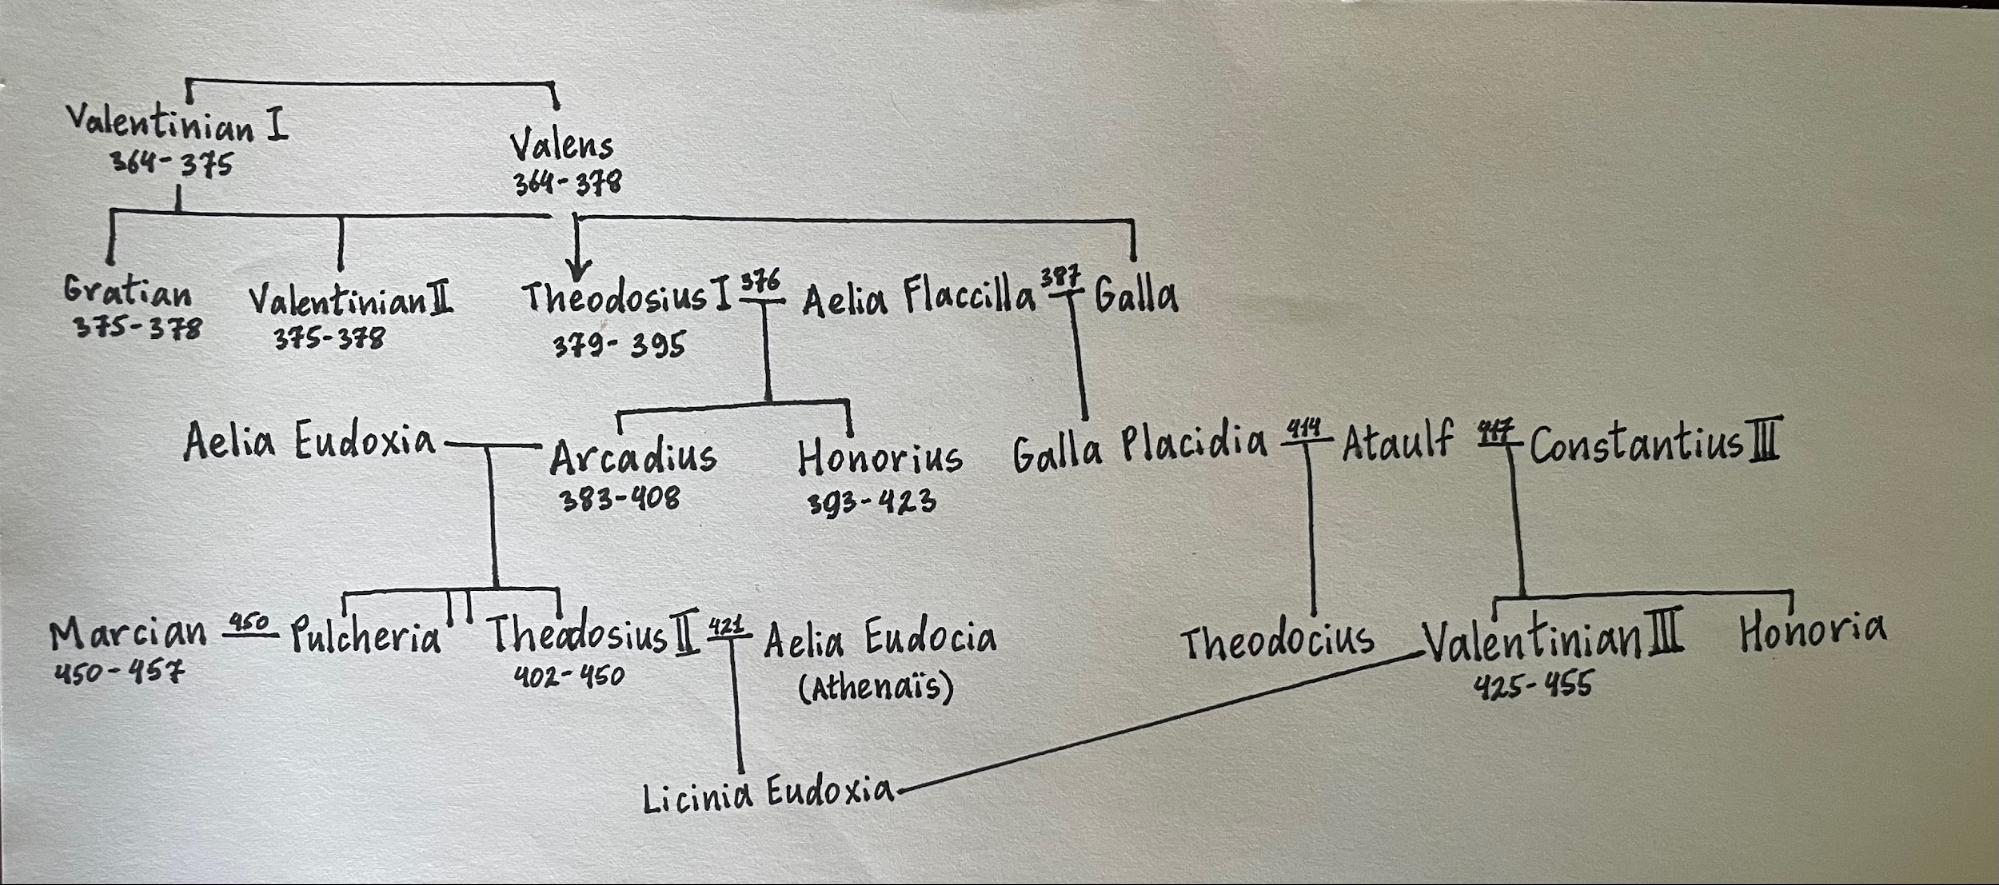 Valentinian I
364-375
Valens
364-378
Gratian
375-378
Valentinian II
375-378
Theodosius I 376 Aelia Flaccilla 387 Galla
379-395
Aelia Eudoxia Arcadius
383-408
Honorius
393-423
Galla Placidia 414 Ataulf 417 Constantius III
Marcian 450 Pulcheria Theodosius II 421 Aelia Eudocia
450-457
402-450
(Athenaïs)
Theodocius Valentinian III Honoria
425-455
Licinia Eudoxia